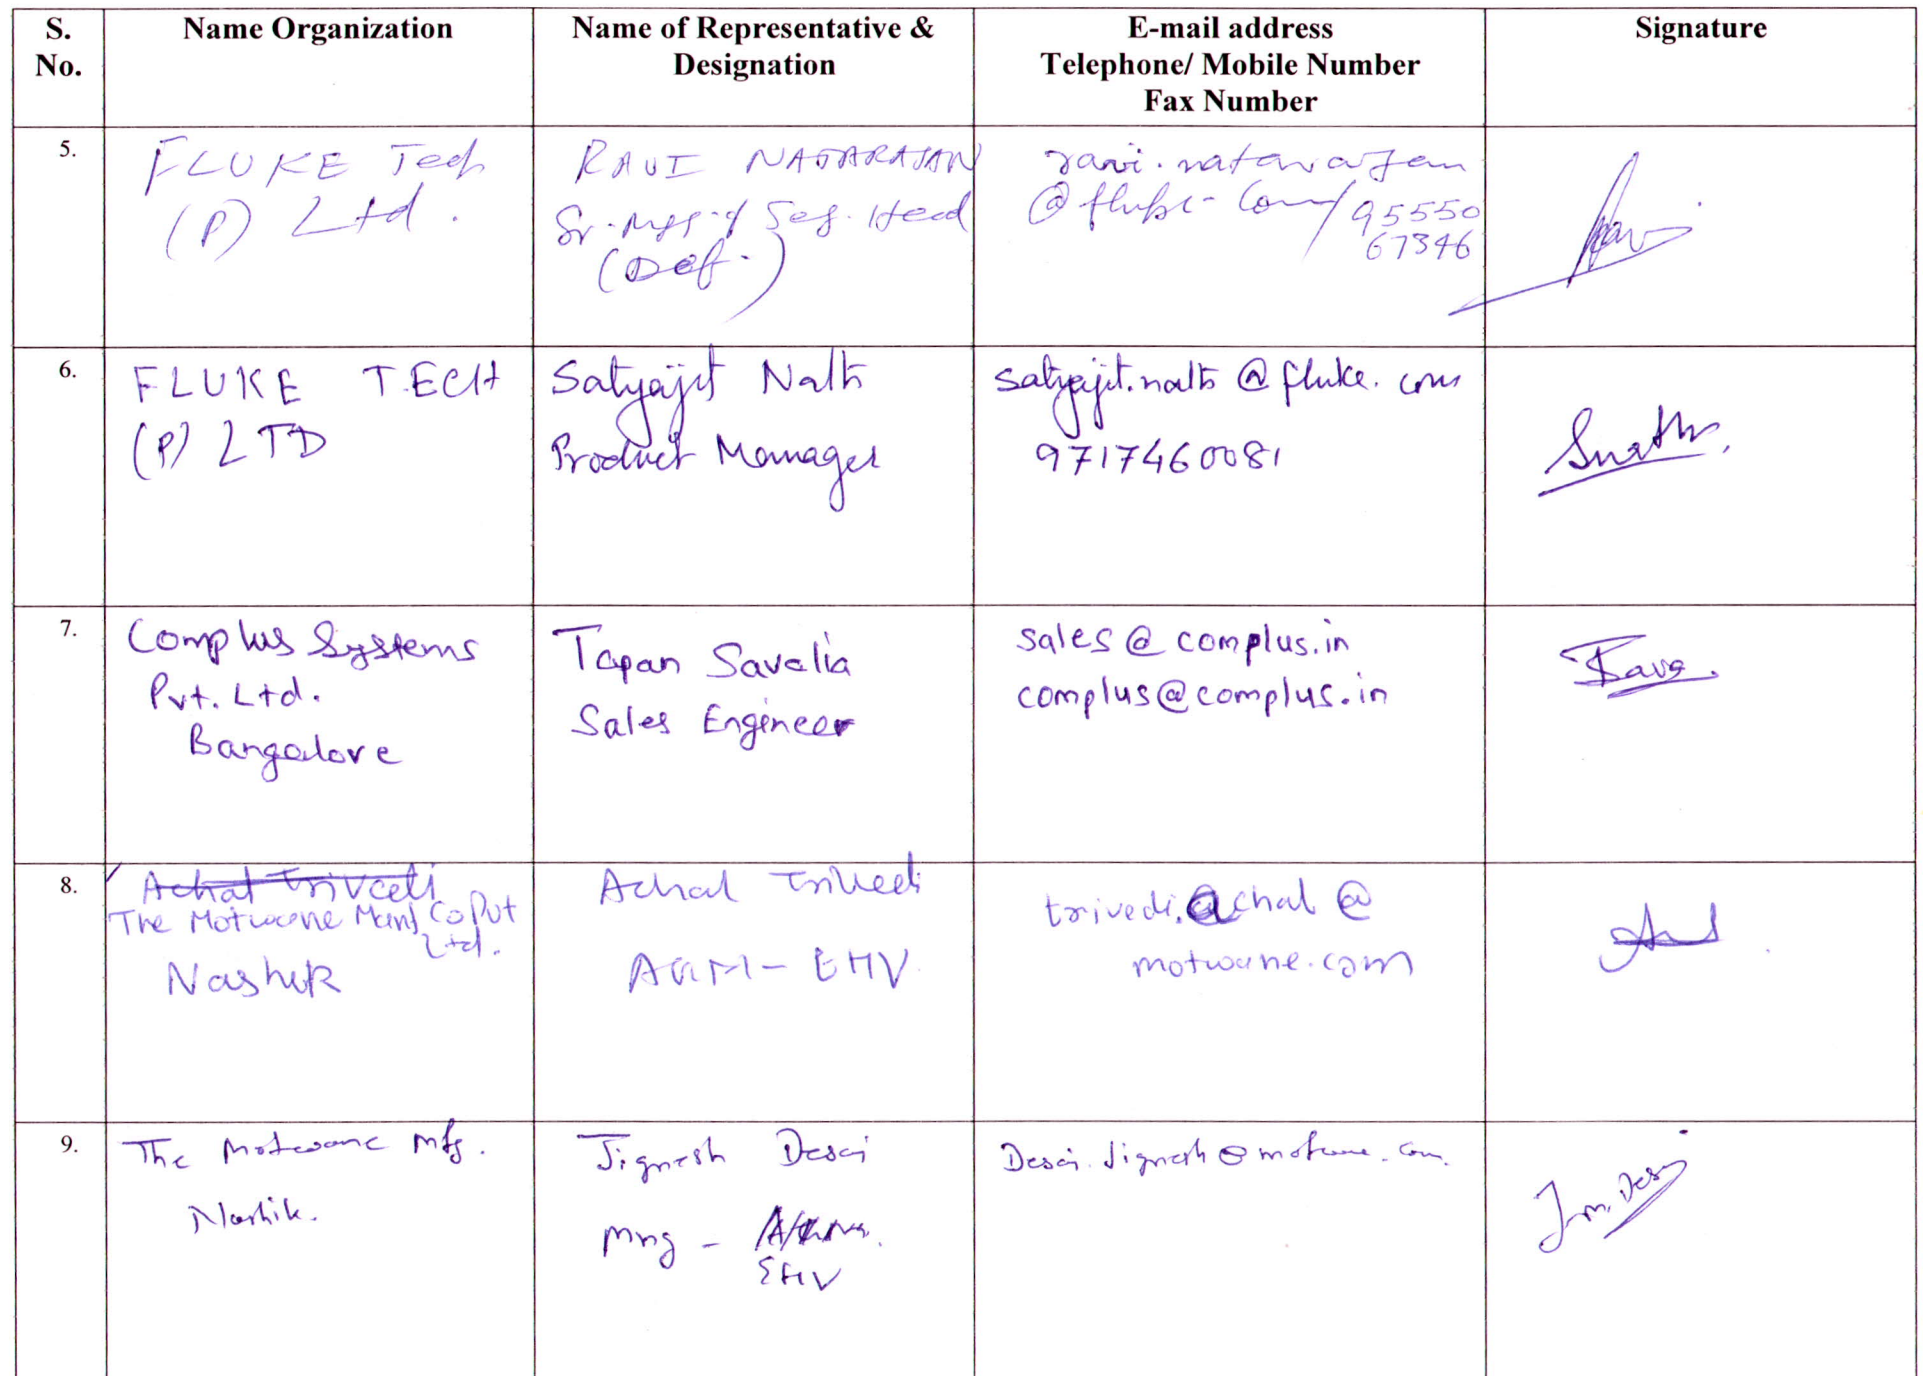 S. No.
Name Organization
Name of Representative & Designation
E-mail address
Telephone/ Mobile Number
Fax Number
Signature
5.
FLUKE Tech
(P) Ltd.
RAVI NATARAJAN
Sr. Mgr. / Seg. Head
(Def.)
ravi.natarajan
@fluke.com/ 95550
67346
6.
FLUKE TECH
(P) LTD
Satyajit Nath
Product Manager
satyajit.nath @ fluke.com
9717460081
7.
Complus Systems
Pvt. Ltd.
Bangalore
Tapan Savalia
Sales Engineer
sales@complus.in
complus@complus.in
8.
Achal Trivedi
The Motwane Manf Co Pvt
Ltd.
Nashik
Achal Trivedi
AGM - EHV
trivedi.achal @
motwane.com
9.
The Motwane Mfg.
Nashik.
Jignesh Desai
Mng -
EHV
Desai.Jignesh@motwane.com.
J.M. Desai